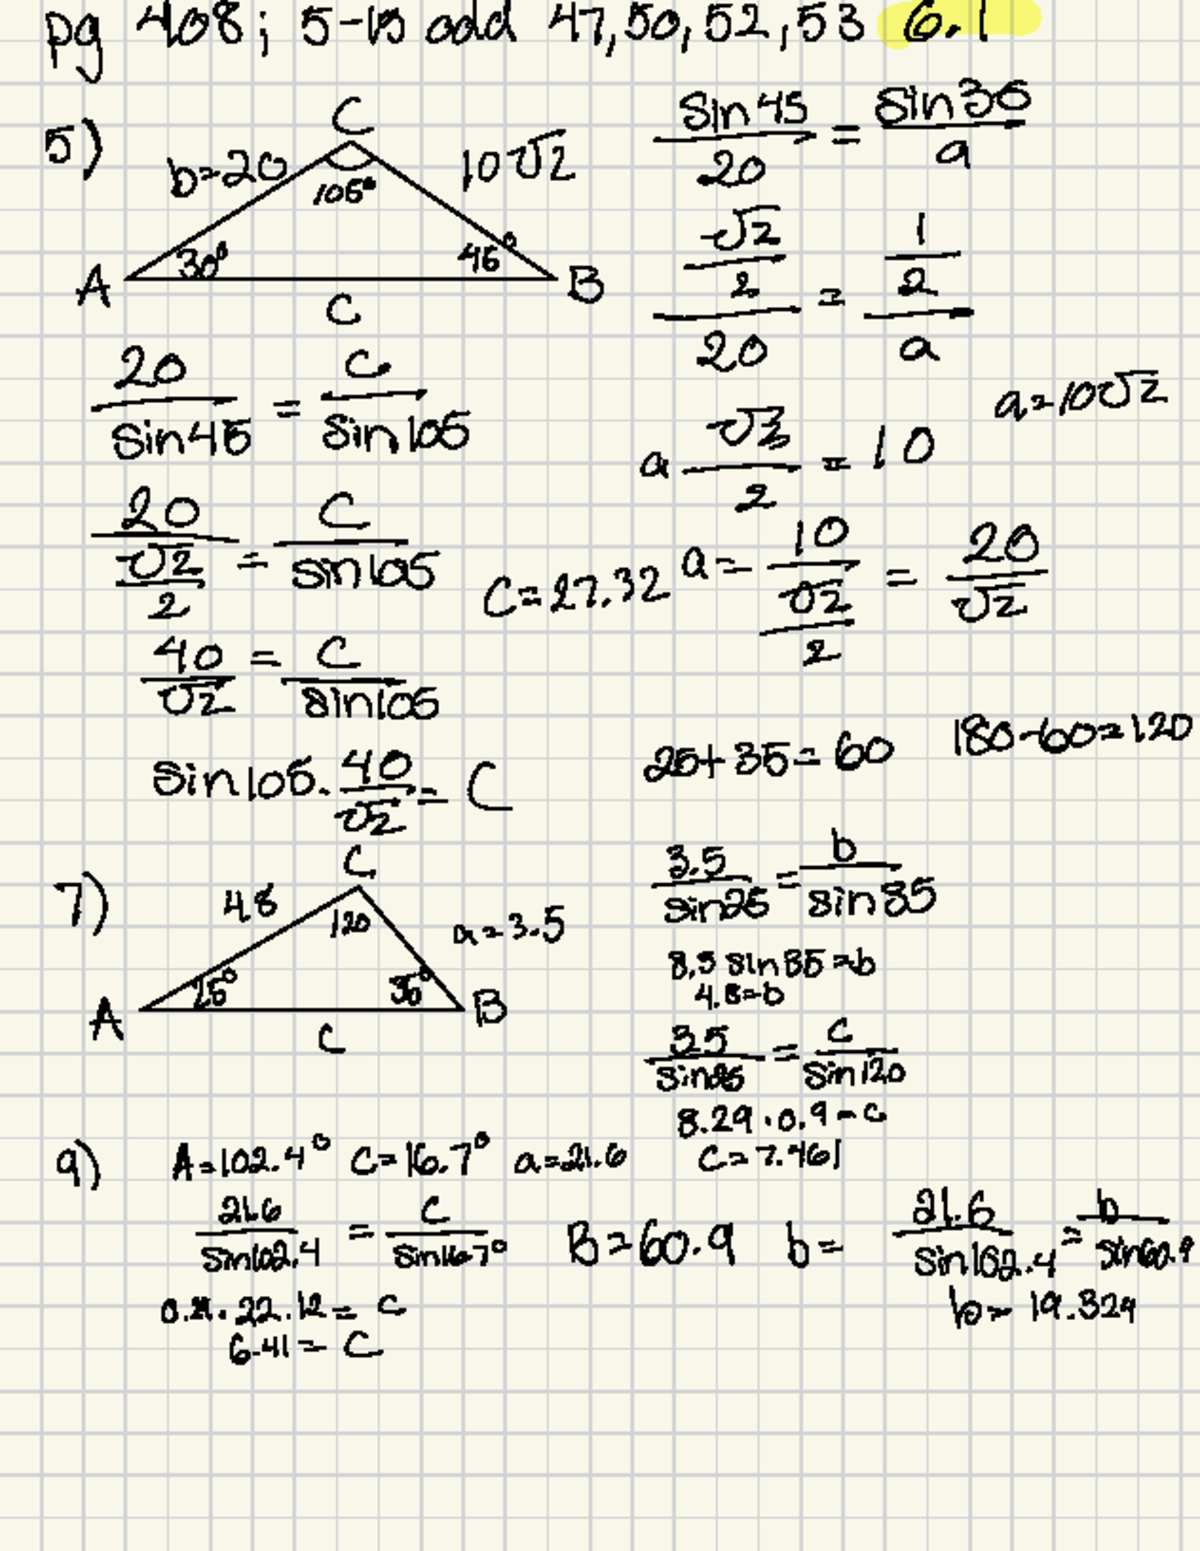 pg 408; 5-15 odd 47,50,52,53 6.1
5)
C
b=20
105°
10√2
30°
45°
A
B
C
sin45/20 = sin30/a
(√2/2)/20 = (1/2)/a
a √2/2 = 10
a=10√2
a= 10/(√2/2) = 20/√2
20/sin45 = C/sin105
20/(√2/2) = C/sin105
C=27.32
40/√2 = C/sin105
sin105·40/√2 = C
7)
C
4.8
120
a=3.5
25°
35°
A
B
C
25+35=60 180-60=120
3.5/sin25 = b/sin35
8.3 sin35=b
4.8=b
3.5/sin25 = C/sin120
8.29·0.9=c
C=7.461
9) A=102.4° C=16.7° a=21.6
21.6/sin102.4 = C/sin16.7°
·22.12= C
6.41= C
B=60.9 b= 21.6/sin102.4 = b/sin60.9
b= 19.324